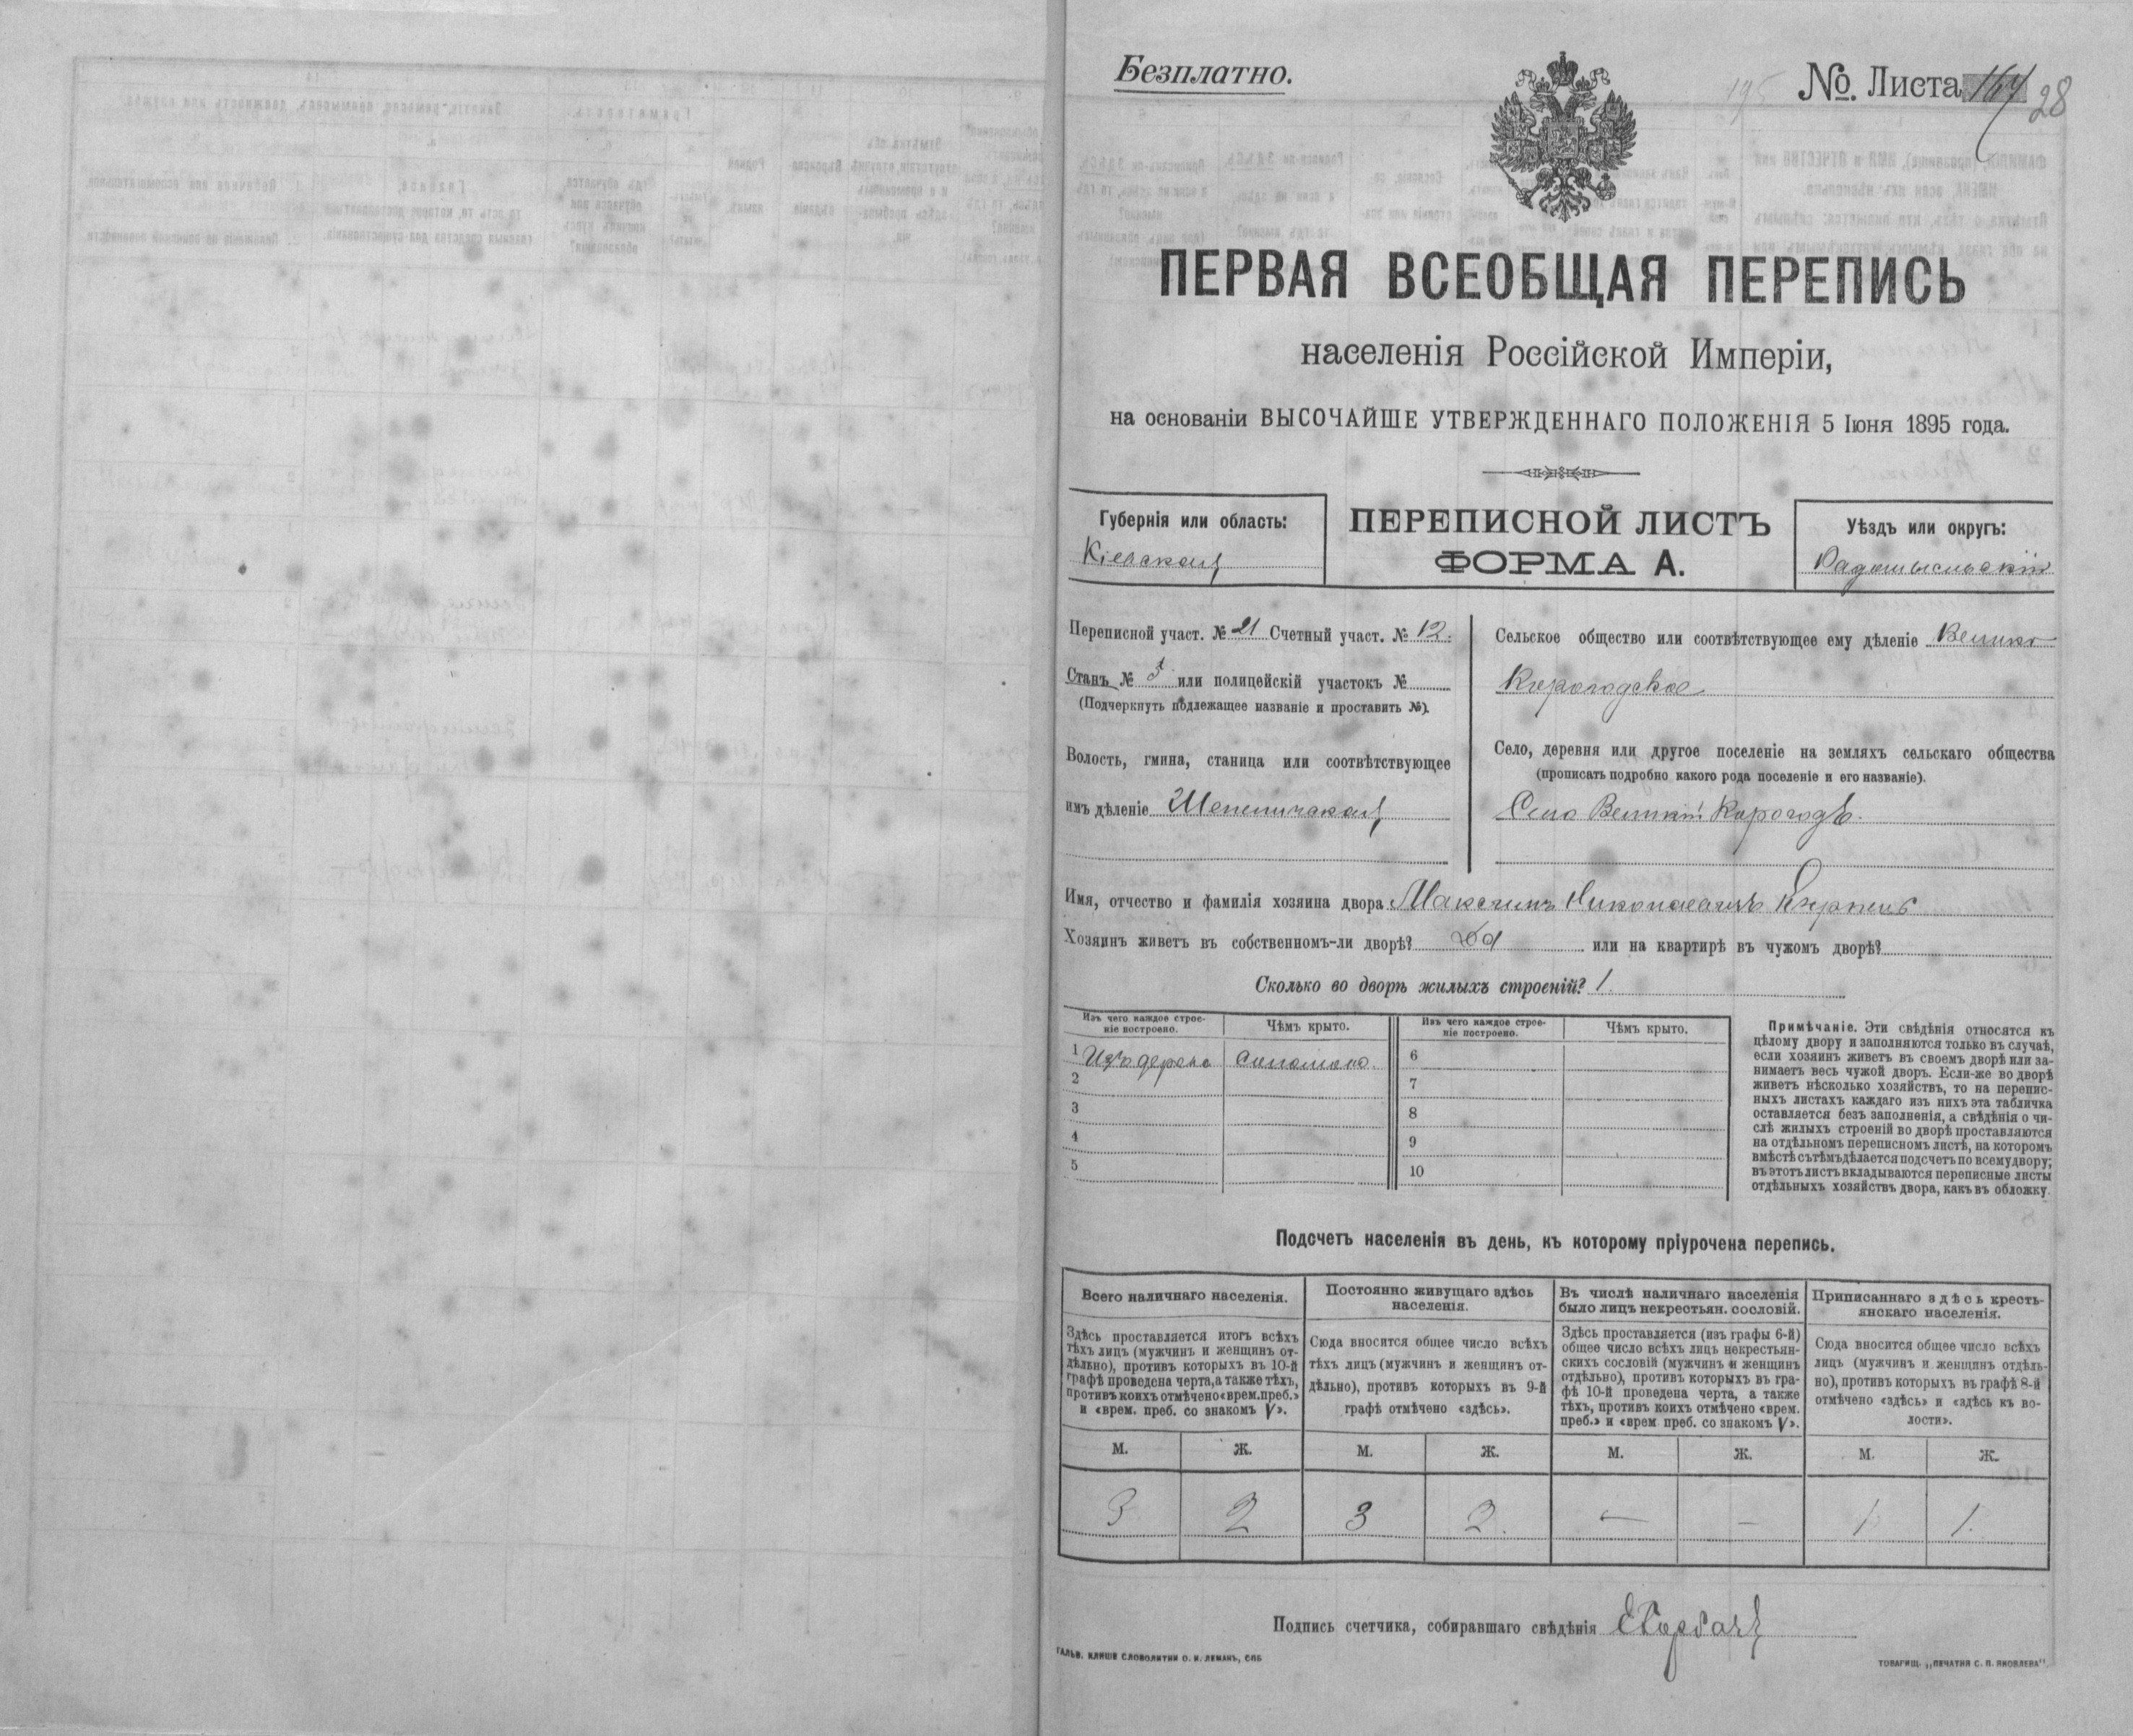 Безплатно.
№. Листа 164 28
195
ПЕРВАЯ ВСЕОБЩАЯ ПЕРЕПИСЬ
населенія Россійской Имперіи,
на основаніи ВЫСОЧАЙШЕ УТВЕРЖДЕННАГО ПОЛОЖЕНІЯ 5 Іюня 1895 года.
Губернія или область:
Кіевская
ПЕРЕПИСНОЙ ЛИСТЪ
ФОРМА А.
Уѣздъ или округъ:
Радомысльскій
Переписной участ. № 21 Счетный участ. № 12.
Станъ № 3 или полицейскій участокъ №
(Подчеркнуть подлежащее названіе и проставить №).
Волость, гмина, станица или соотвѣтствующее
имъ дѣленіе Шепеличская
Сельское общество или соотвѣтствующее ему дѣленіе Велико
Корогодское
Село, деревня или другое поселеніе на земляхъ сельскаго общества
(прописать подробно какого рода поселеніе и его названіе).
Село Великій Корогодъ.
Имя, отчество и фамилія хозяина двора Максимъ Николаевичъ
Хозяинъ живетъ въ собственномъ-ли дворѣ? Да или на квартирѣ въ чужомъ дворѣ?
Сколько во дворѣ жилыхъ строеній? 1.
Изъ чего каждое строе-
ніе построено.
Чѣмъ крыто.
Изъ чего каждое строе-
ніе построено.
Чѣмъ крыто.
1 Изъ дерева соломою.
2
3
4
5
6
7
8
9
10
Примѣчаніе. Эти свѣдѣнія относятся къ
цѣлому двору и заполняются только въ случаѣ,
если хозяинъ живетъ въ своемъ дворѣ или за-
нимаетъ весь чужой дворъ. Если-же во дворѣ
живетъ нѣсколько хозяйствъ, то на перепис-
ныхъ листахъ каждаго изъ нихъ эта табличка
оставляется безъ заполненія, а свѣдѣнія о чи-
слѣ жилыхъ строеній во дворѣ проставляются
на отдѣльномъ переписномъ листѣ, на которомъ
вмѣстѣ съ тѣмъ дѣлается подсчетъ по всему двору;
въ этотъ листъ вкладываются переписные листы
отдѣльныхъ хозяйствъ двора, какъ въ обложку.
Подсчетъ населенія въ день, къ которому пріурочена перепись.
Всего наличнаго населенія.
Здѣсь проставляется итогъ всѣхъ
тѣхъ лицъ (мужчинъ и женщинъ от-
дѣльно), противъ которыхъ въ 10-й
графѣ проведена черта, а также тѣхъ,
противъ коихъ отмѣчено «врем. преб.»
и «врем. преб. со знакомъ V».
Постоянно живущаго здѣсь
населенія.
Сюда вносится общее число всѣхъ
тѣхъ лицъ (мужчинъ и женщинъ от-
дѣльно), противъ которыхъ въ 9-й
графѣ отмѣчено «здѣсь».
Въ числѣ наличнаго населенія
было лицъ некрестьян. сословій.
Здѣсь проставляется (изъ графы 6-й)
общее число всѣхъ лицъ некрестьян-
скихъ сословій (мужчинъ и женщинъ
отдѣльно), противъ которыхъ въ гра-
фѣ 10-й проведена черта, а также
тѣхъ, противъ коихъ отмѣчено «врем.
преб.» и «врем преб. со знакомъ V».
Приписаннаго здѣсь кресть-
янскаго населенія.
Сюда вносится общее число всѣхъ
лицъ (мужчинъ и женщинъ отдѣль-
но), противъ которыхъ въ графѣ 8-й
отмѣчено «здѣсь» и «здѣсь къ во-
лости».
М. Ж. М. Ж. М. Ж. М. Ж.
3 2 3 2. — — 1 1.
Подпись счетчика, собиравшаго свѣдѣнія ЕГорбач
ГАЛЬВ. КЛИШЕ СЛОВОЛИТНИ О. И. ЛЕМАНЪ, СПБ
ТОВАРИЩ. „ПЕЧАТНЯ С. П. ЯКОВЛЕВА".